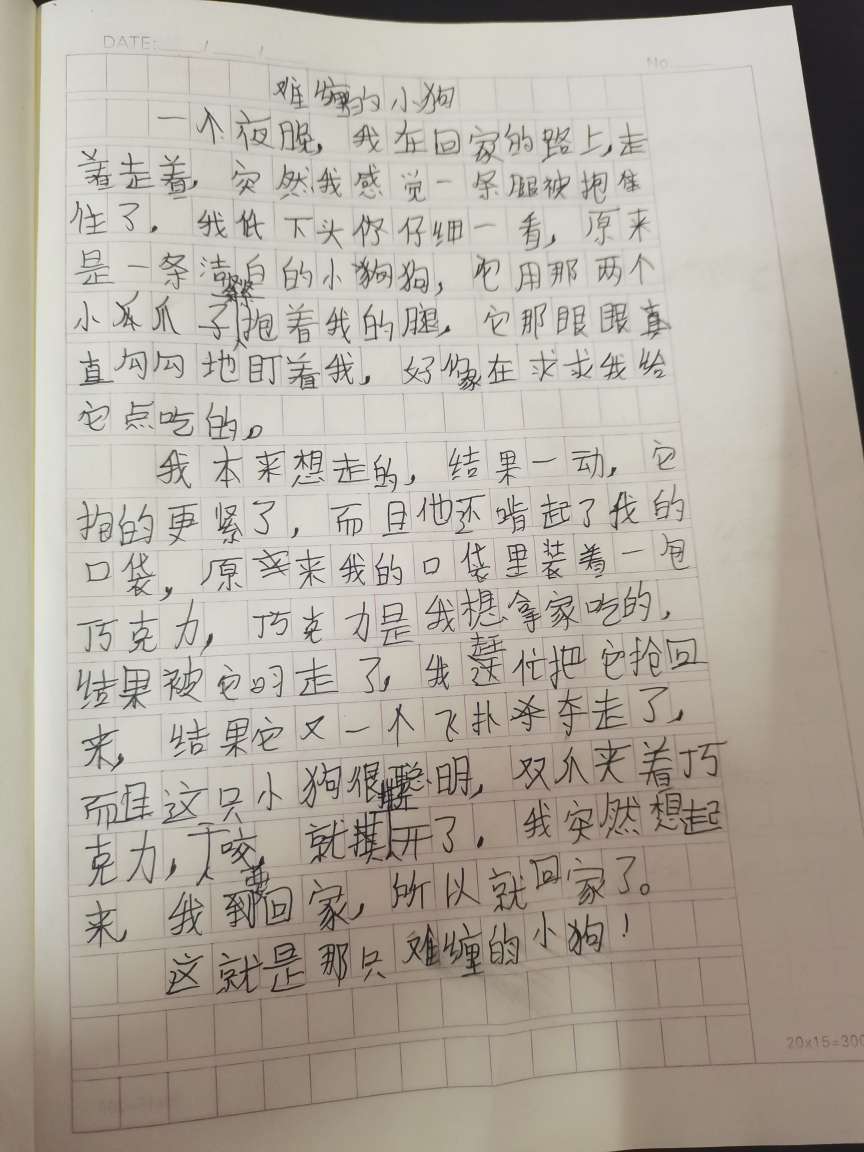 DATE: / /
No
难缠的小狗
一个夜晚，我在回家的路上，走
着走着，突然我感觉一条腿被抱住
住了。我低下头仔仔细一看，原来
是一条洁白的小狗狗，它用那两个
小爪爪子紧紧抱着我的腿，它那眼眼直
直勾勾地盯着我，好像在求求我给
它点吃的。
我本来想走的，结果一动，它
抱的更紧了，而且他还啃起了我的
口袋，原来我的口袋里装着一包
巧克力，巧克力是我想拿家吃的，
结果被它叼走了，我连忙把它抢回
来，结果它又一个飞扑夺走了，
而且这只小狗很聪明，双爪夹着巧
克力，一咬，就撕开了。我突然想起
来，我要回家，所以就回家了。
这就是那只难缠的小狗！
20x15=300